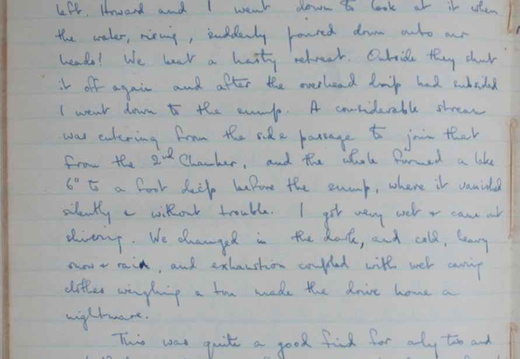 left. Howard and I went down to look at it when
the water, rising, suddenly poured down onto our
heads! We beat a hasty retreat. Outside they shut
it off again and after the overhead drip had subsided
I went down to the sump. A considerable stream
was entering from the side passage to join that
from the 2nd Chamber, and the whole formed a lake
6" to a foot deep before the sump, where it vanished
silently & without trouble. I got very wet & came out
shivering. We changed in the dark, and cold, heavy
snow & rain, and exhaustion coupled with wet caving
clothes weighing a ton made the drive home a
nightmare.
This was quite a good find for only two and